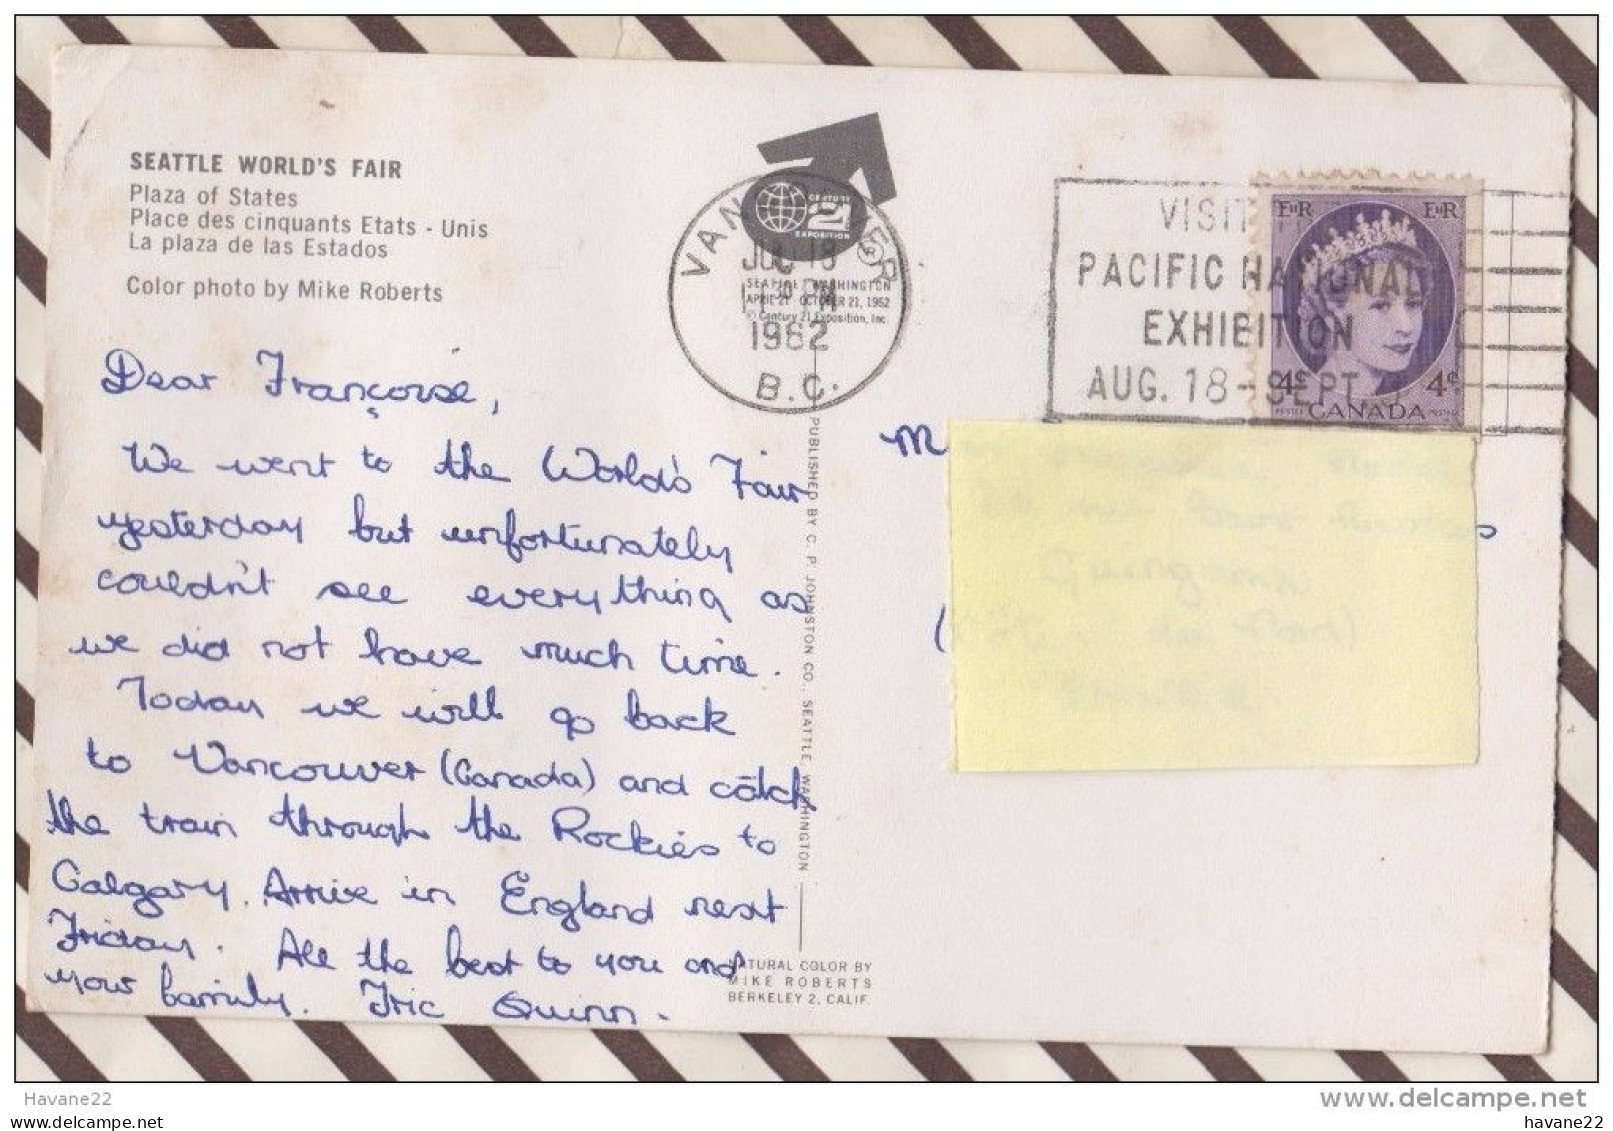 SEATTLE WORLD'S FAIR
Plaza of States
Place des cinquants Etats - Unis
La plaza de las Estados
Color photo by Mike Roberts
Dear Françoise,
We went to the World's Fair
yesterday but unfortunately
couldn't see everything as
we did not have much time.
Today we will go back
to Vancouver (Canada) and catch
the train through the Rockies to
Calgary. Arrive in England next
Friday. All the best to you and
your family. Quinn.
CENTURY
21
EXPOSITION
SEATTLE WASHINGTON
APRIL 21 - OCTOBER 21, 1962
© Century 21 Exposition, Inc.
VANCOUVER
PM
1962
B.C.
PUBLISHED BY C. P. JOHNSTON CO., SEATTLE, WASHINGTON
NATURAL COLOR BY
MIKE ROBERTS
BERKELEY 2, CALIF.
VISIT
PACIFIC NATIONAL
EXHIBITION
AUG. 18 - SEPT.
EIIR EIIR
4¢ 4¢
POSTES CANADA POSTAGE
M
(
Havane22
www.delcampe.net
havane22